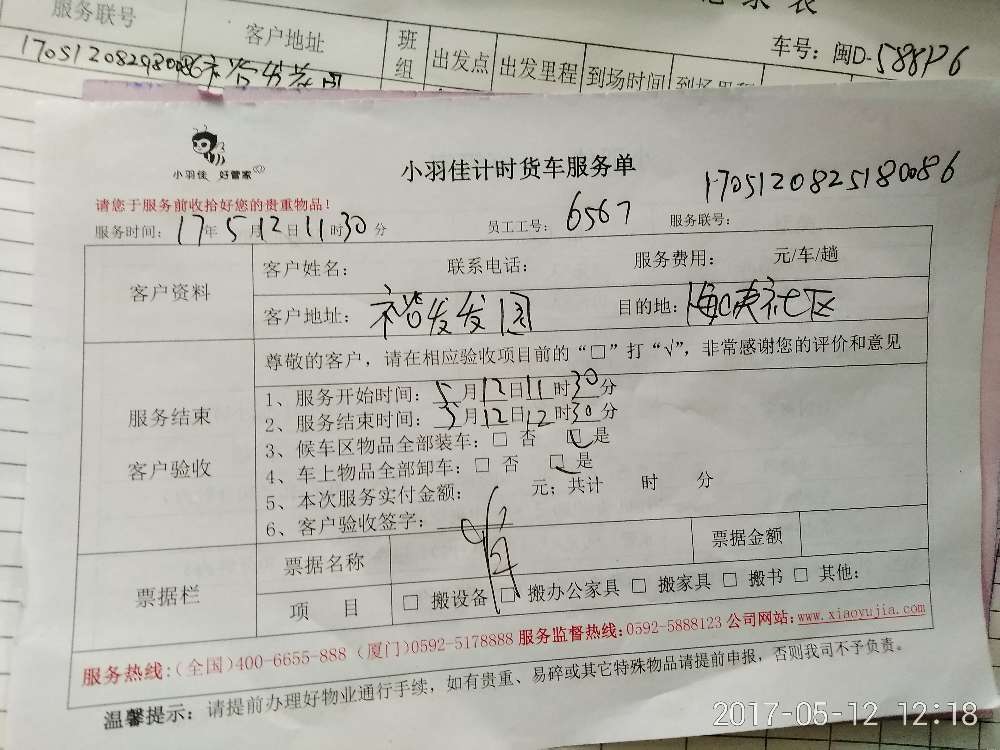 服务联号 客户地址 班组 出发点 出发里程 到场时间
车号：闽D-588P6
小羽佳 好管家
小羽佳计时货车服务单
1705120825180086
请您于服务前收拾好您的贵重物品！
服务时间：17年5月12日11时30分 员工工号：6567 服务联号：
客户资料
客户姓名： 联系电话： 服务费用： 元/车/趟
客户地址：裕发发园 目的地：海沧社区
尊敬的客户，请在相应验收项目前的“□”打“√”，非常感谢您的评价和意见
服务结束
客户验收
1、服务开始时间：5月12日11时30分
2、服务结束时间：5月12日12时30分
3、候车区物品全部装车：□ 否 □ 是
4、车上物品全部卸车：□ 否 □ 是
5、本次服务实付金额： 元；共计 时 分
6、客户验收签字：
票据栏
票据名称 票据金额
项 目 □ 搬设备 □ 搬办公家具 □ 搬家具 □ 搬书 □ 其他：
服务热线：（全国）400-6655-888（厦门）0592-5178888 服务监督热线：0592-5888123 公司网站：www.xiaoyujia.com
温馨提示：请提前办理好物业通行手续，如有贵重、易碎或其它特殊物品请提前申报，否则我司不予负责。
2017-05-12 12:18